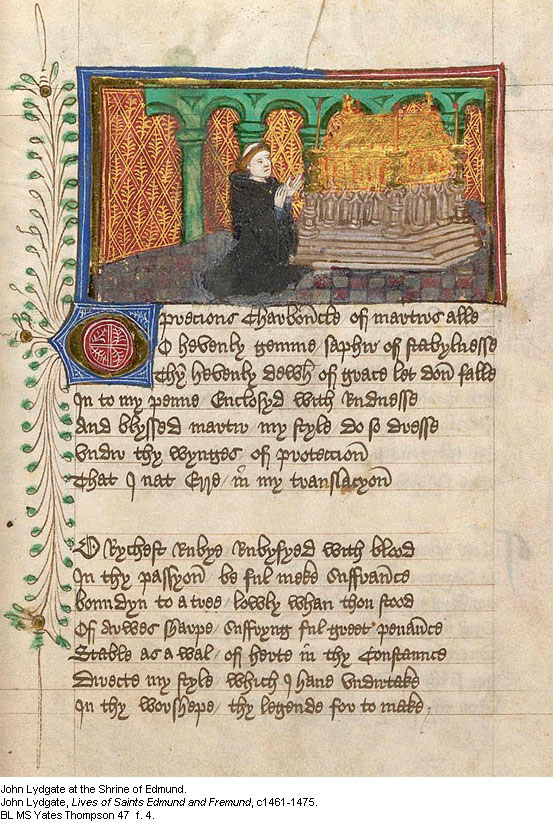 O precious Charboncle of martirs alle
O hevenly gemme saphir of stabylnesse
Thy hevenly dewh of grace let don falle
In to my penne Enclosyd with Rudnesse
And blyssed martir my style do so dresse
Undir thy wynges of proteccion
That I nat Erre / in my translacyon
O Rychest Rubye Rubyfyed with blood
In thy passyon be ful meke Suffrance
bonndyn to a tree / lowly whan thou stood
Of arwes sharpe / Suffryng ful greet penance
Stable as a wal / of herte in thy Constannce
Directe my style which I have Undirtake
In thy worshepe / thy legende for to make.
John Lydgate at the Shrine of Edmund.
John Lydgate, Lives of Saints Edmund and Fremund, c1461-1475.
BL MS Yates Thompson 47 f. 4.